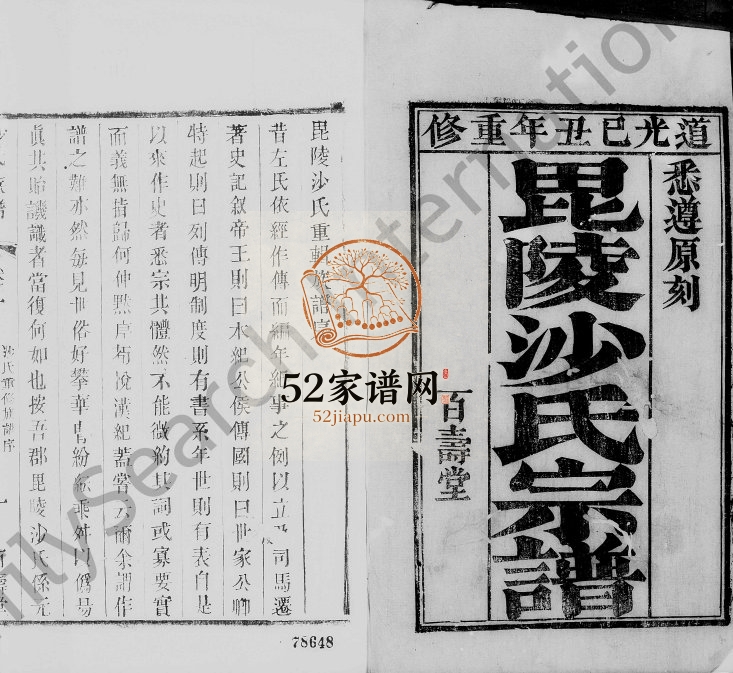 道光己丑年重修
悉遵原刻
毘陵沙氏宗譜
百壽堂
毘陵沙氏重輯族譜序
昔左氏依經作傳而編年紀事之例以立 司馬遷
著史記叙帝王則曰本紀公侯傳國則曰世家公卿
特起則曰列傳明制度則有書系年世則有表自是
以來作史者悉宗其體然不能微約其詞或寡要實
而義無指歸何仲黙序荀悅漢紀蓋嘗云爾余謂作
譜之難亦然每見世俗好攀華胄紛紜乘舛以僞易
眞其貽譏識者當復何如也按吾郡毘陵沙氏係元
沙氏重修族譜序
一
百壽堂
78648
52家谱网
52jiapu.com
FamilySearch International